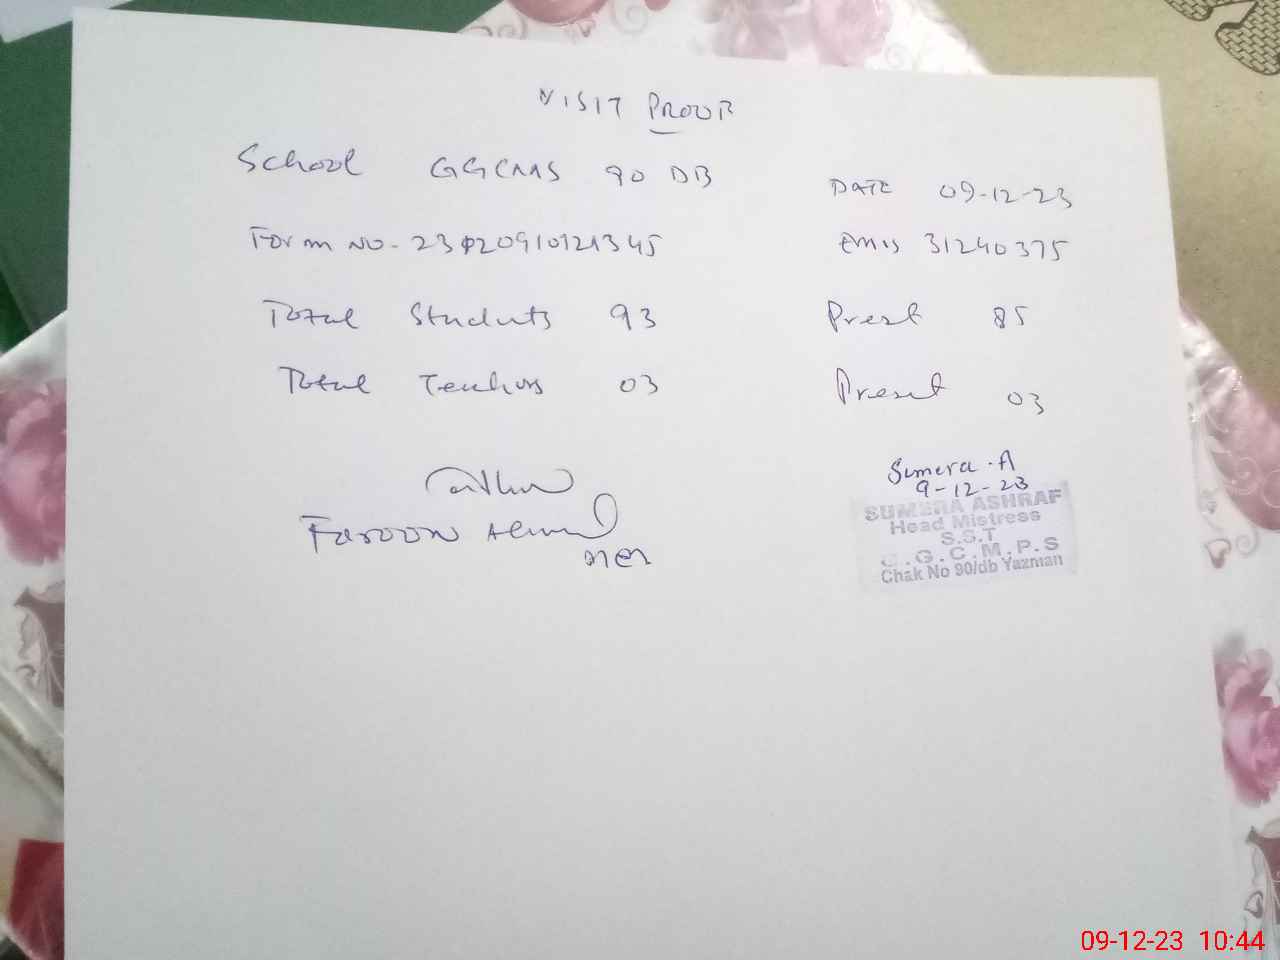 VISIT PROOF
School GGCMS 90 DB
DATE 09-12-23
Form NO- 230209109121345
EMIS 31240375
Total Students 93
Present 85
Total Teachers 03
Present 03
Farooq Ahmad
MEA
Sumera .A
9-12-23
SUMERA ASHRAF
Head Mistress
S.S.T
G.G.C.M.P.S
Chak No 90/db Yazman
09-12-23 10:44